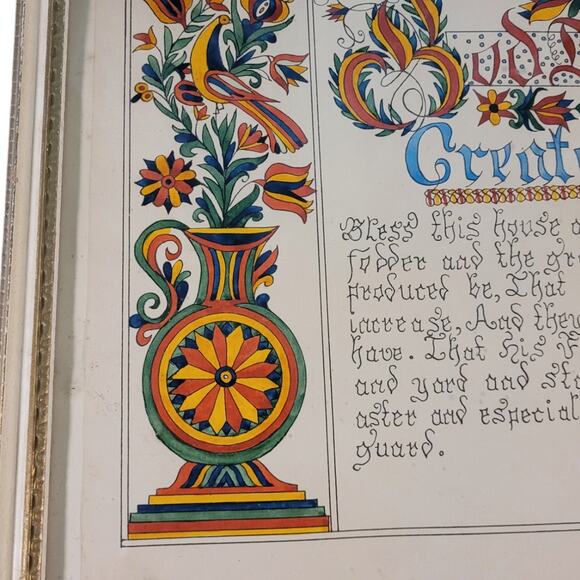 God
Create
Bless this house a
fodder and the gr
produced be, That
increase, And they
have. That his
and yard and st
aster and especial
guard.